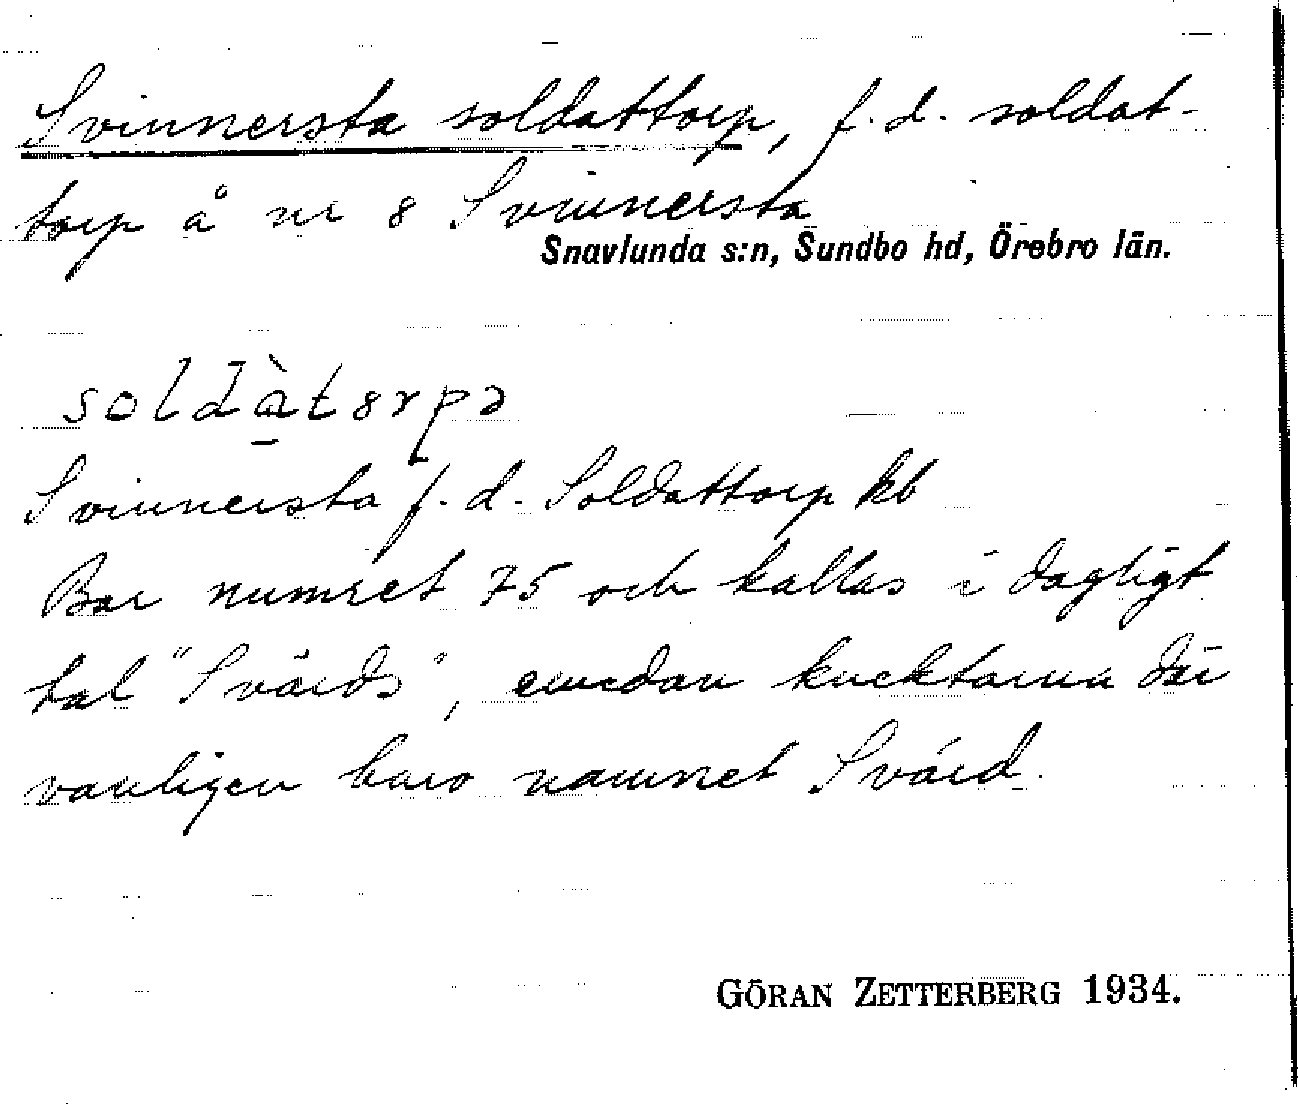 Svinnersta soldattorp, f.d. soldat-
torp å nr 8 Svinnersta
Snavlunda s:n, Sundbo hd, Örebro län.
soldàt8rpə
Svinnersta f.d. Soldattorp kb
Bar numret 75 och kallas i dagligt
tal "Svärds", emedan knektarna där
vanligen buro namnet Svärd.
GÖRAN ZETTERBERG 1934.